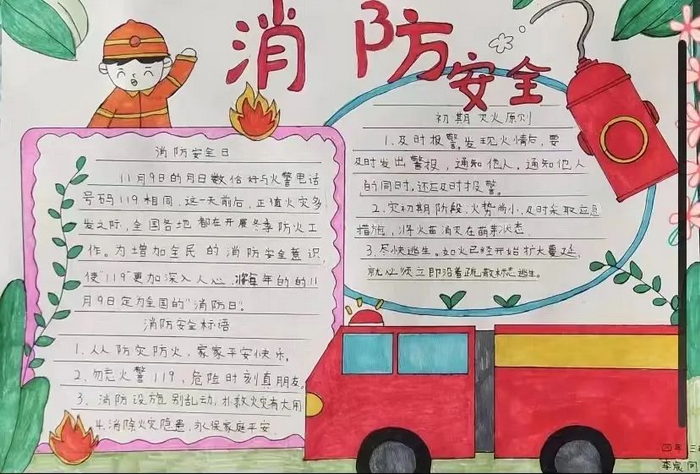 消防安全
消防安全日
11月9日的月日数恰好与火警电话
号码119相同，这一天前后，正值火灾多
发之际，全国各地都在开展冬季防火工
作。为增加全民的消防安全意识，
使"119"更加深入人心，将每年的的11
月9日定为全国的"消防日"。
消防安全标语
1、人人防灾防火，家家平安快乐。
2、勿忘火警119，危险时刻真朋友。
3、消防设施别乱动，扑救火灾有大用
4.消除火灾隐患，永保家庭平安
初期灭火原则
1.及时报警。发现火情后，要
及时发出警报，通知他人。通知他人
的同时，还应及时报警。
2.灾初期阶段，火势尚小，及时采取应急
措施，将火苗消灭在萌芽状态
3.尽快逃生。如火已经开始扩大蔓延，
就必须立即沿着疏散标志逃生。
四年
李